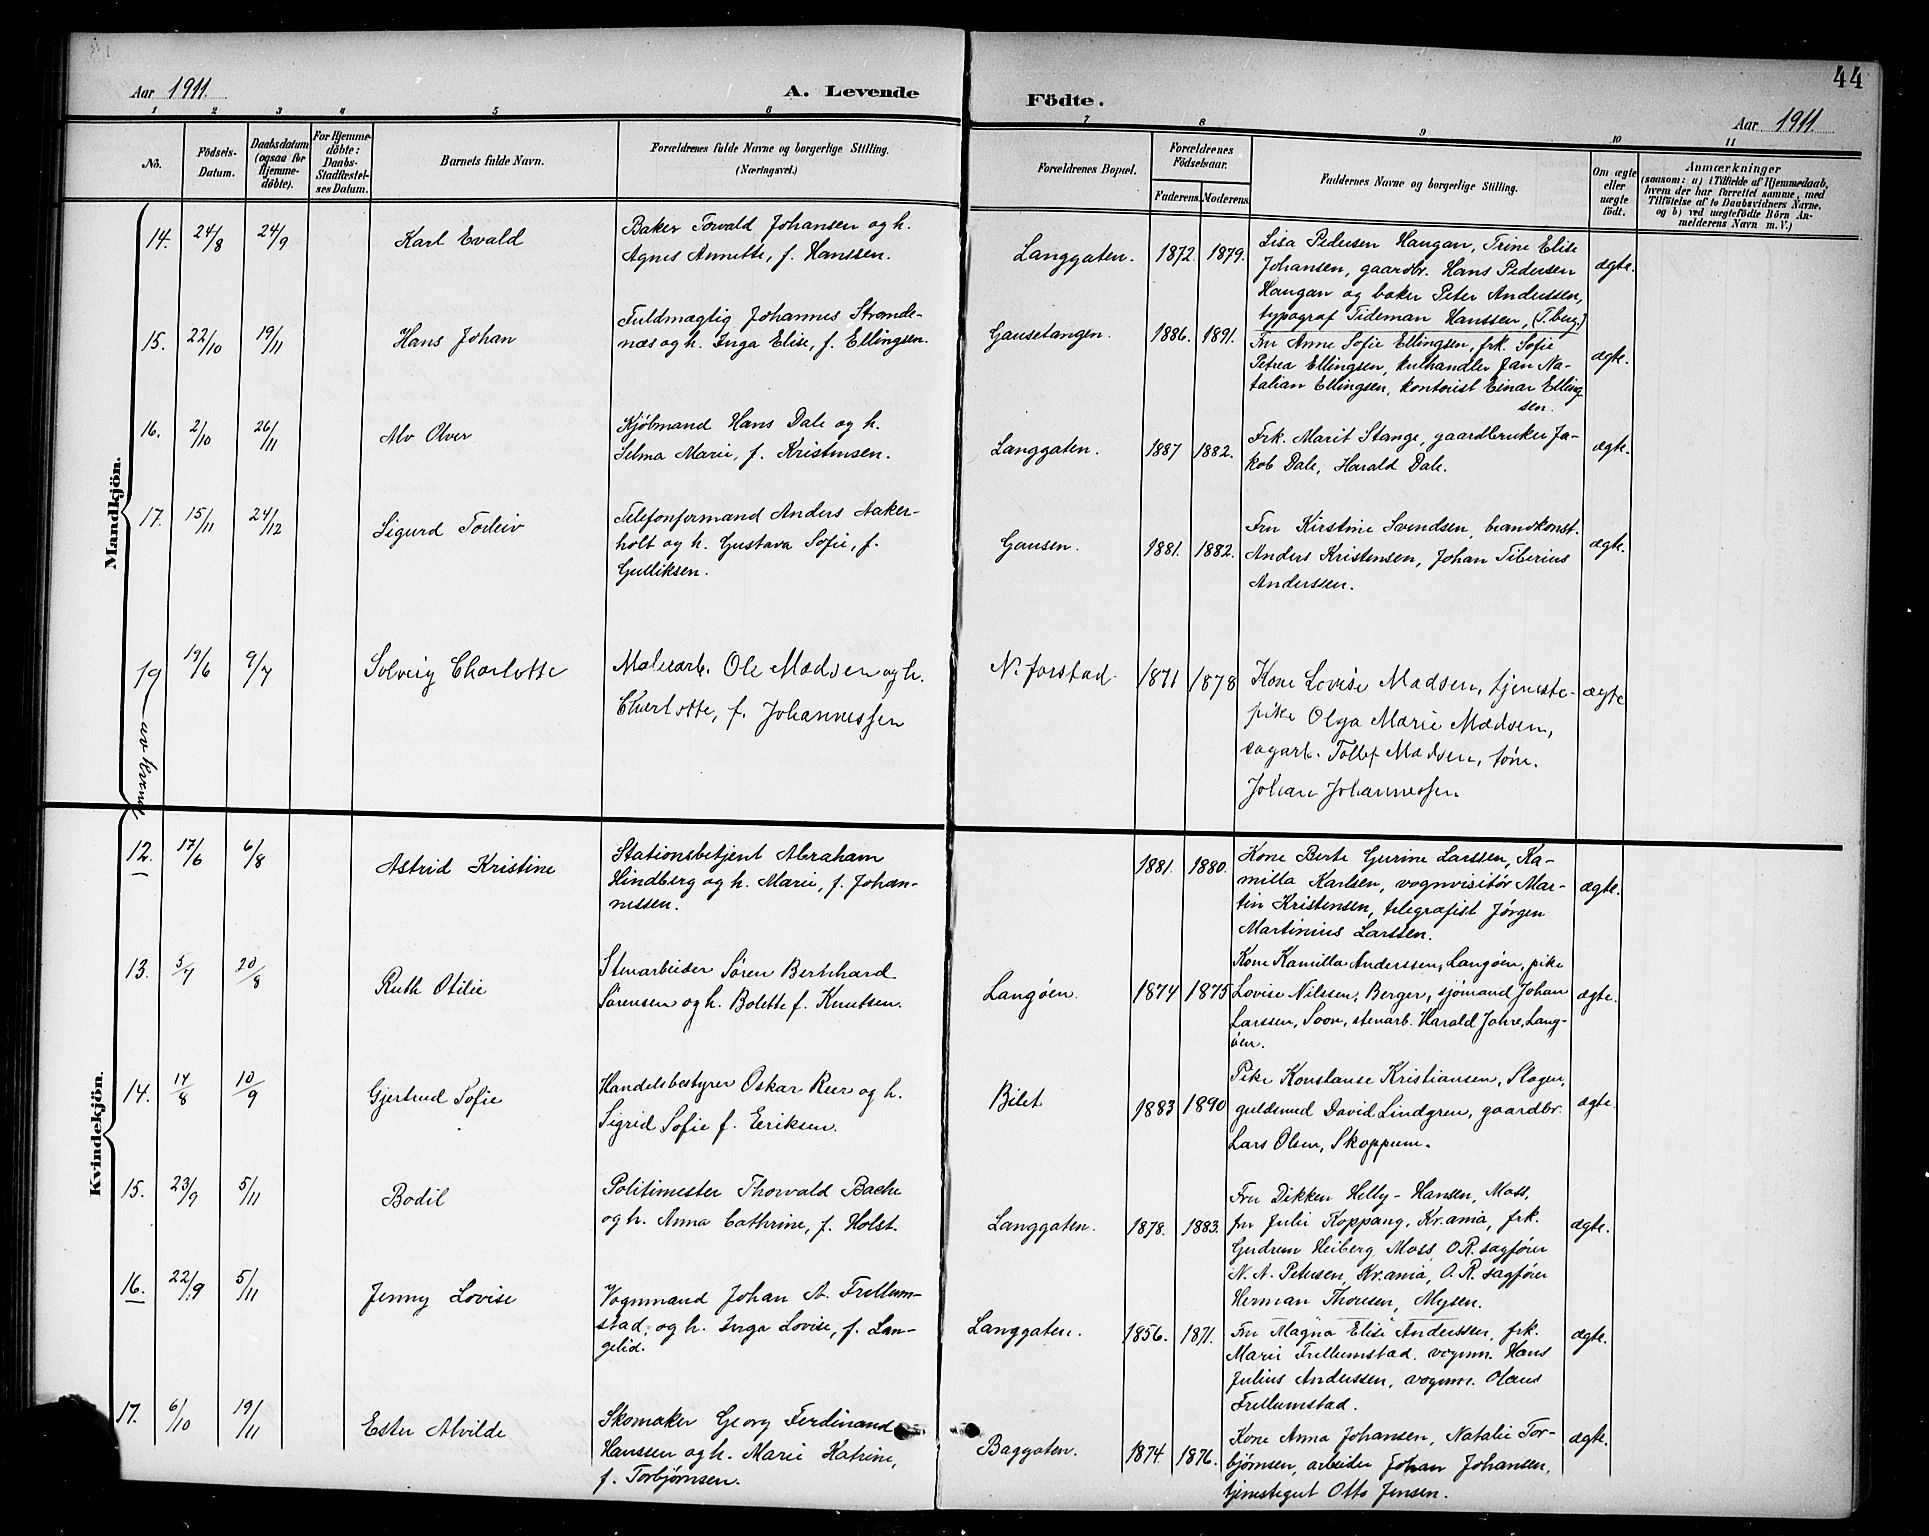 44
Aar 1911.
A. Levende
Födte.
Aar 1911
1 2 3 4 5 6 7 8 9 10 11
No.
Födsels-
Datum.
Daabsdatum
(ogsaa for
Hjemme-
døbte).
For Hjemme-
döbte:
Daabs-
Stadfæstel-
ses Datum.
Barnets fulde Navn.
Forældrenes fulde Navne og borgerlige Stilling.
(Næringsvei.)
Forældrenes Bopæl.
Forældrenes
Födselsaar.
Faderens. Moderens.
Faddernes Navne og borgerlige Stilling.
Om ægte
eller
uægte
födt.
Anmærkninger
(saasom: a) i Tilfælde af Hjemmedaab,
hvem der har forrettet samme, med
Tilföielse af to Daabsvidners Navne.
og b) ved uægtefödte Börn An-
melderens Navn m. V.)
Mandkjön.
14. 24/8 24/9 Karl Evald
Baker Torvald Johansen og h.
Agnes Annette, f. Hanssen.
Langgaten. 1872. 1879.
Lisa Pedersen Haugan, Trine Elise
Johansen, gaardbr. Hans Pedersen
Haugan og baker Peter Anderssen,
typograf Tideman Hanssen, (T.berg.)
ægte.
15. 22/10 19/11 Hans Johan
Fuldmægtig Johannes Strande-
næs og h. Inga Elise, f. Ellingsen.
Gausetangen. 1886. 1891.
Fru Anne Sofie Ellingsen, frk. Sofie
Petrea Ellingsen, kulhandler Jan Na-
talian Ellingsen, kontorist Einar Elling
sen.
ægte.
16. 2/10 26/11 Alv Olver
Kjølmand Hans Dale og h.
Selma Marie, f. Kristensen.
Langgaten. 1887 1882.
Frk. Marit Stange, gaardbruker Ja-
kob Dale, Harald Dale.
ægte.
17. 15/11 24/12 Sigurd Torleiv
Telefonformand Anders Naker-
holt og h. Gustava Sofie, f.
Gulliksen.
Gausen. 1881. 1882.
Fru Kirstine Svendsen, brandkonst.
Anders Kristensen, Johan Tiberius
Anderssen.
ægte.
19 av kvindek. 19/6 9/7 Solveig Charlotte
Malerarb. Ole Madsen og h.
Charlotte, f. Johannessen
N. forstad. 1871 1878
Kone Lovise Madsen, tjeneste-
pike Olga Marie Madsen,
sagarb. Tollef Madsen, tøm.
Johan Johannessen
ægte
Kvindekjön.
12. 17/6 6/8 Astrid Kristine
Stationsbetjent Abraham
Hindberg og h. Marie, f. Johan-
nessen.
1881. 1880.
Kone Berte Gurine Larssen, Ka-
milla Karlsen, vognvisitør Mar-
tin Kristensen, telegrafist Jørgen
Martinius Larssen.
ægte.
13. 5/7 20/8 Ruth Otilie
Stenarbeider Søren Bernhard
Sørensen og h. Bolette f. Knutsen.
Langøen. 1874 1875
Kone Kamilla Anderssen, Langøen, pike
Lovise Nilssen, Berger, sjømand Johan
Larssen, Soon, stenarb. Harald Jahre, Lang-
øen.
ægte.
14. 14/8 10/9 Gjertrud Sofie
Handelsbestyrer Oskar Reer og h.
Sigrid Sofie f. Eriksen.
Bilet 1883 1890
Pike Konstanse Kristiansen, Slagen,
guldsmed David Lindgren, gaardbr.
Lars Olsen, Skoppum.
ægte.
15. 23/9 5/11 Bodil
Politimester Thorvald Bache
og h. Anna Cathrine, f. Holst.
Langgaten. 1878. 1883.
Fru Dikken Helly-Hansen, Moss,
fru Julie Koppang, Kr.ania, frk.
Gudrun Heiberg, Moss, O.R. sagfører
N. A. Petersen, Kr.ania, O.R. sagfører
Herman Thoresen, Mysen.
ægte.
16. 22/9 5/11 Jenny Lovise
Vognmand Johan A. Frellum-
stad, og h. Inga Lovise, f. Lan-
gelid.
Langgaten. 1856. 1871.
Fru Magna Elise Anderssen, frk.
Marie Frellumstad, vognm. Hans
Julius Anderssen, vognm. Olaus
Frellumstad.
ægte.
17. 6/10 19/11 Ester Alvilde
Skomaker Georg Ferdinand
Hanssen og h. Marie Katrine,
f. Torbjørnsen.
Baggaten. 1874. 1876.
Kone Anna Johansen, Natalie Tor-
bjørnsen, arbeider Johan Johansen,
tjenestegut Otto Jensen.
ægte.